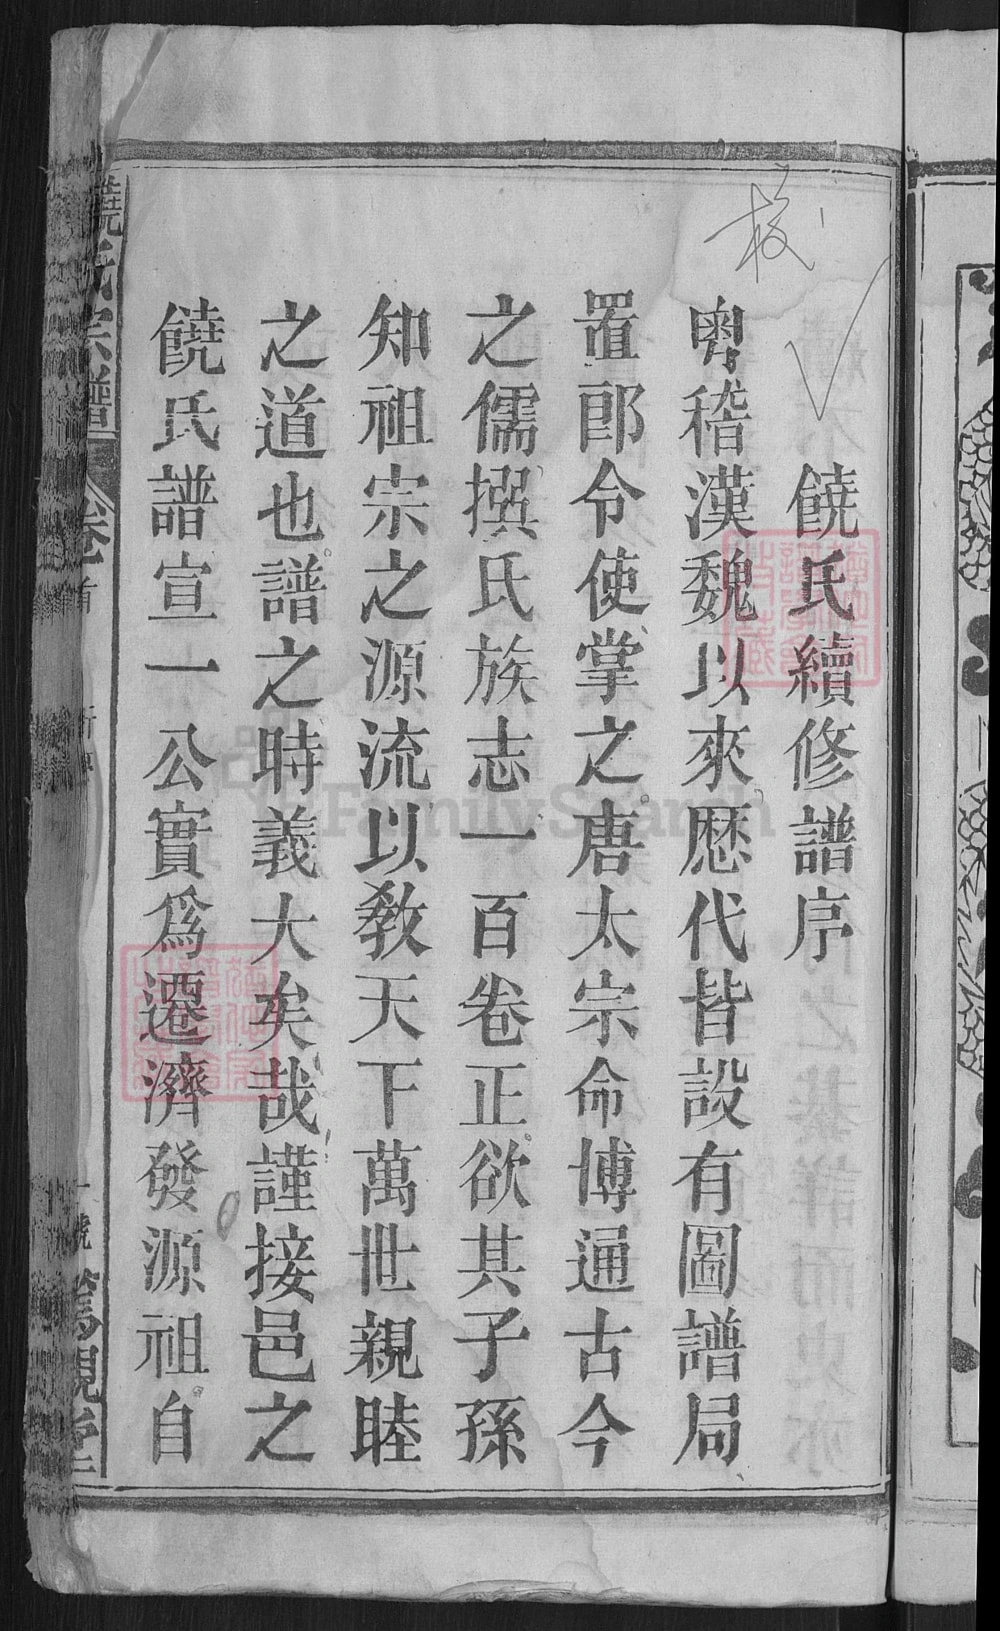 饒氏續修譜序
粵稽漢魏以來歷代皆設有圖譜局
置郎令使掌之唐太宗命博通古今
之儒撰氏族志一百卷正欲其子孫
知祖宗之源流以敎天下萬世親睦
之道也譜之時義大矣哉謹接邑之
饒氏譜宣一公實爲遷濟發源祖自
饒氏宗譜
卷首
一號
篤親堂
校
FamilySearch